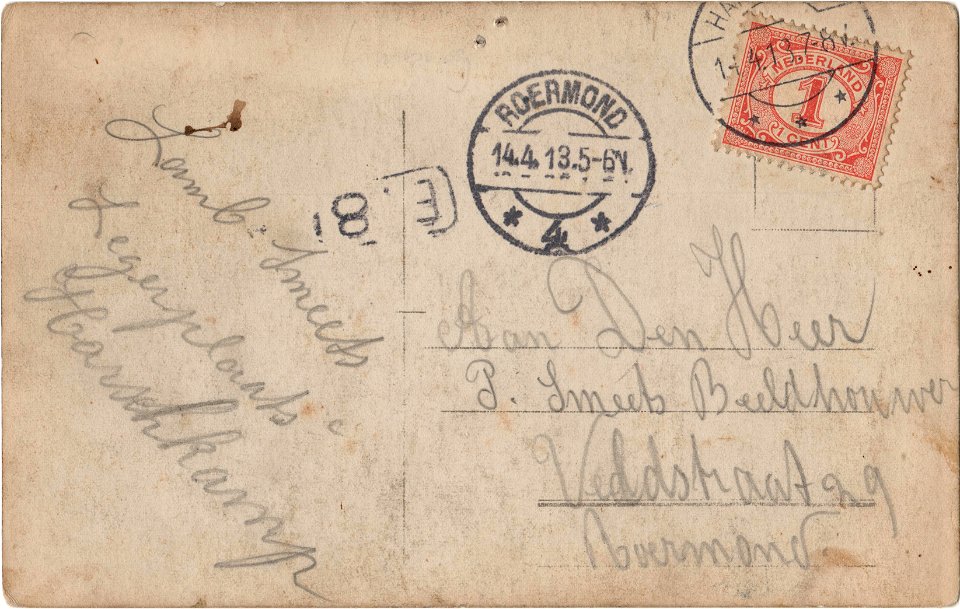 Lamb. Smeets
Legerplaats
Harskamp
8 E
ROERMOND
14.4.13.5-6N.
4
HA
14.4.13.7-8V.
NEDERLAND
1
1 CENT
Aan Den Heer
P. Smeets Beeldhouwer
Veldstraat 29
Roermond